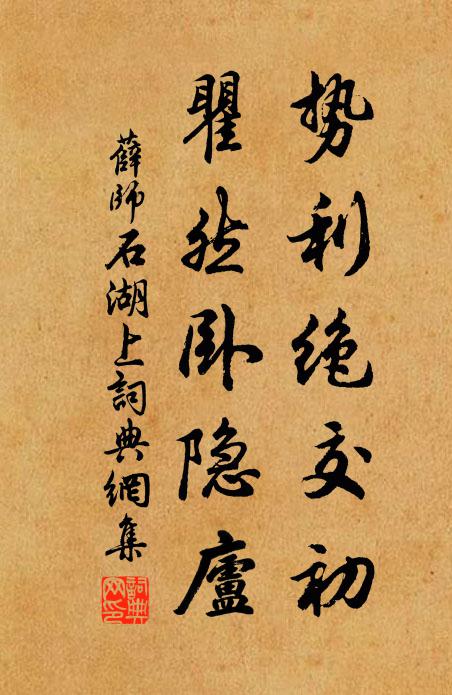 势利绝交初
瞿然卧隐廬
薛師石湖上詞典網集
詞典網印